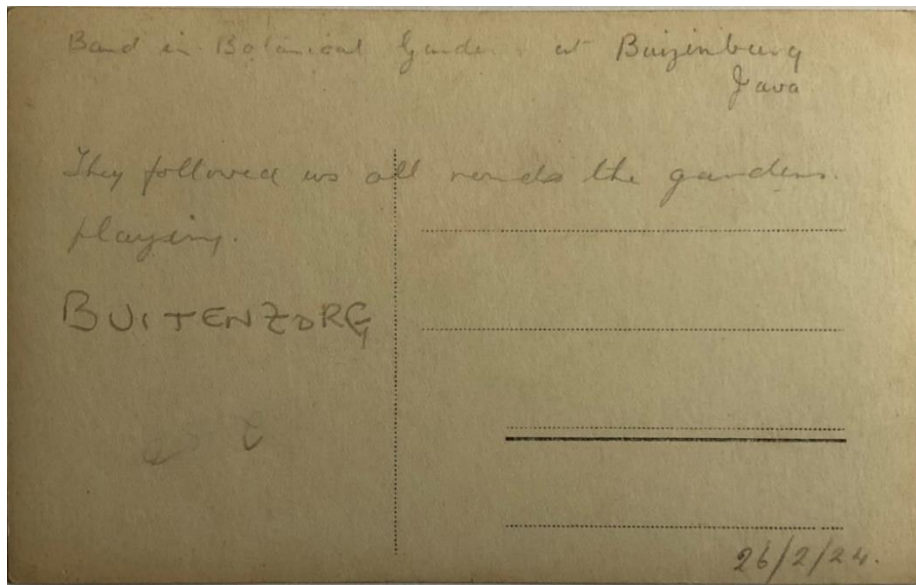 Band in Botanical Gardens at Buizenburg
Java
They followed us all rounds the gardens.
playing.
BUITENZORG
26/2/24.